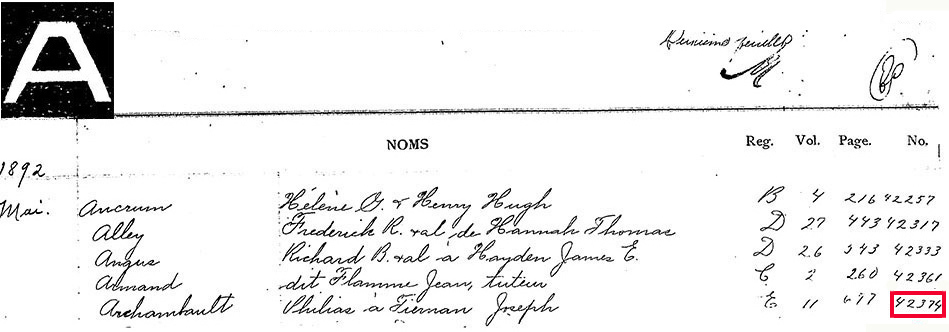 A
NOMS Reg. Vol. Page. No.
1892
Mai. Ancrum Hélène G. & Henry Hugh B 4 216 42257
Alley Frederick R. & al de Hannah Thomas D 27 443 42317
Angus Richard B. & al à Hayden James E. D 26 543 42333
Armand dit Flamme Jean, tuteur C 2 260 42361
Archambault Philias à Tiernan Joseph E 11 42374